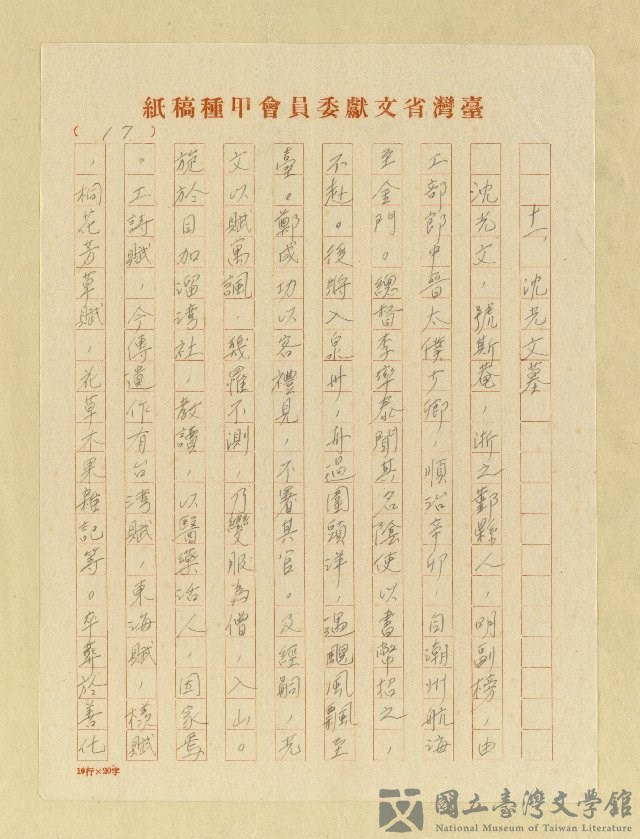 臺灣省文獻委員會甲種稿紙
(17)
十一、沈光文墓
沈光文，號斯菴，浙之鄞縣人，明副榜，由
工部郎中晉太僕少卿，順治辛卯，自潮州航海
至金門。總督李率泰聞其名陰使以書幣招之，
不赴。後將入泉州，舟過圍頭洋，遇颶風飄至
臺。鄭成功以客禮見，不署其官。及經嗣，光
文以賦寓諷，幾罹不測，乃變服為僧，入山。
旋於目加溜湾社，教讀，以醫藥活人，因家焉
。工詩賦，今傳遺作有台湾賦，東海賦，檨賦
，桐花芳草賦，花草木果雜記等。卒葬於善化
10行×20字
國立臺灣文學館
National Museum of Taiwan Literature